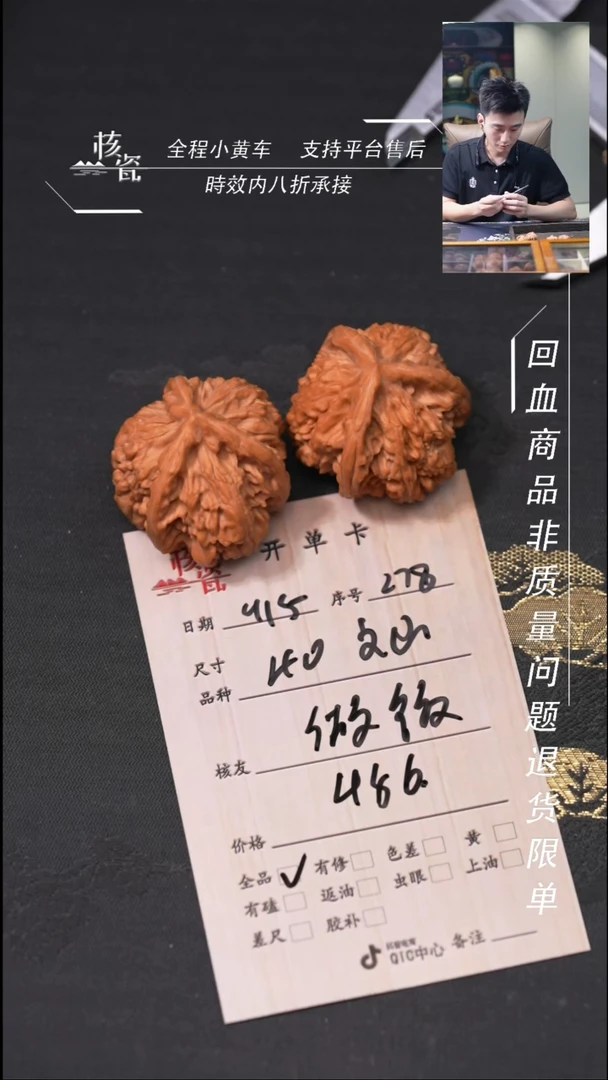 核瓷
全程小黄车 支持平台售后
時效内八折承接
回血商品非质量问题退货限单
核瓷 开单卡
日期 4/5 序号 278
尺寸
品种
核友
486
价格
全品 ✓ 有修 色差 黄
有磕 返油 虫眼 上油
差尺 胶补
抖音电商
QIC中心 备注